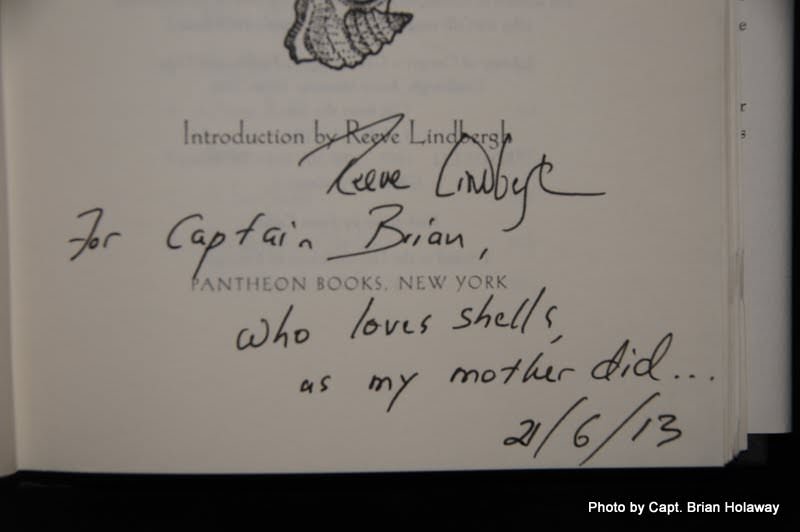 Introduction by Reeve Lindbergh
Reeve Lindbergh
For Captain Brian,
PANTHEON BOOKS, NEW YORK
who loves shells,
as my mother did...
21/6/13
e
r
s
Photo by Capt. Brian Holaway